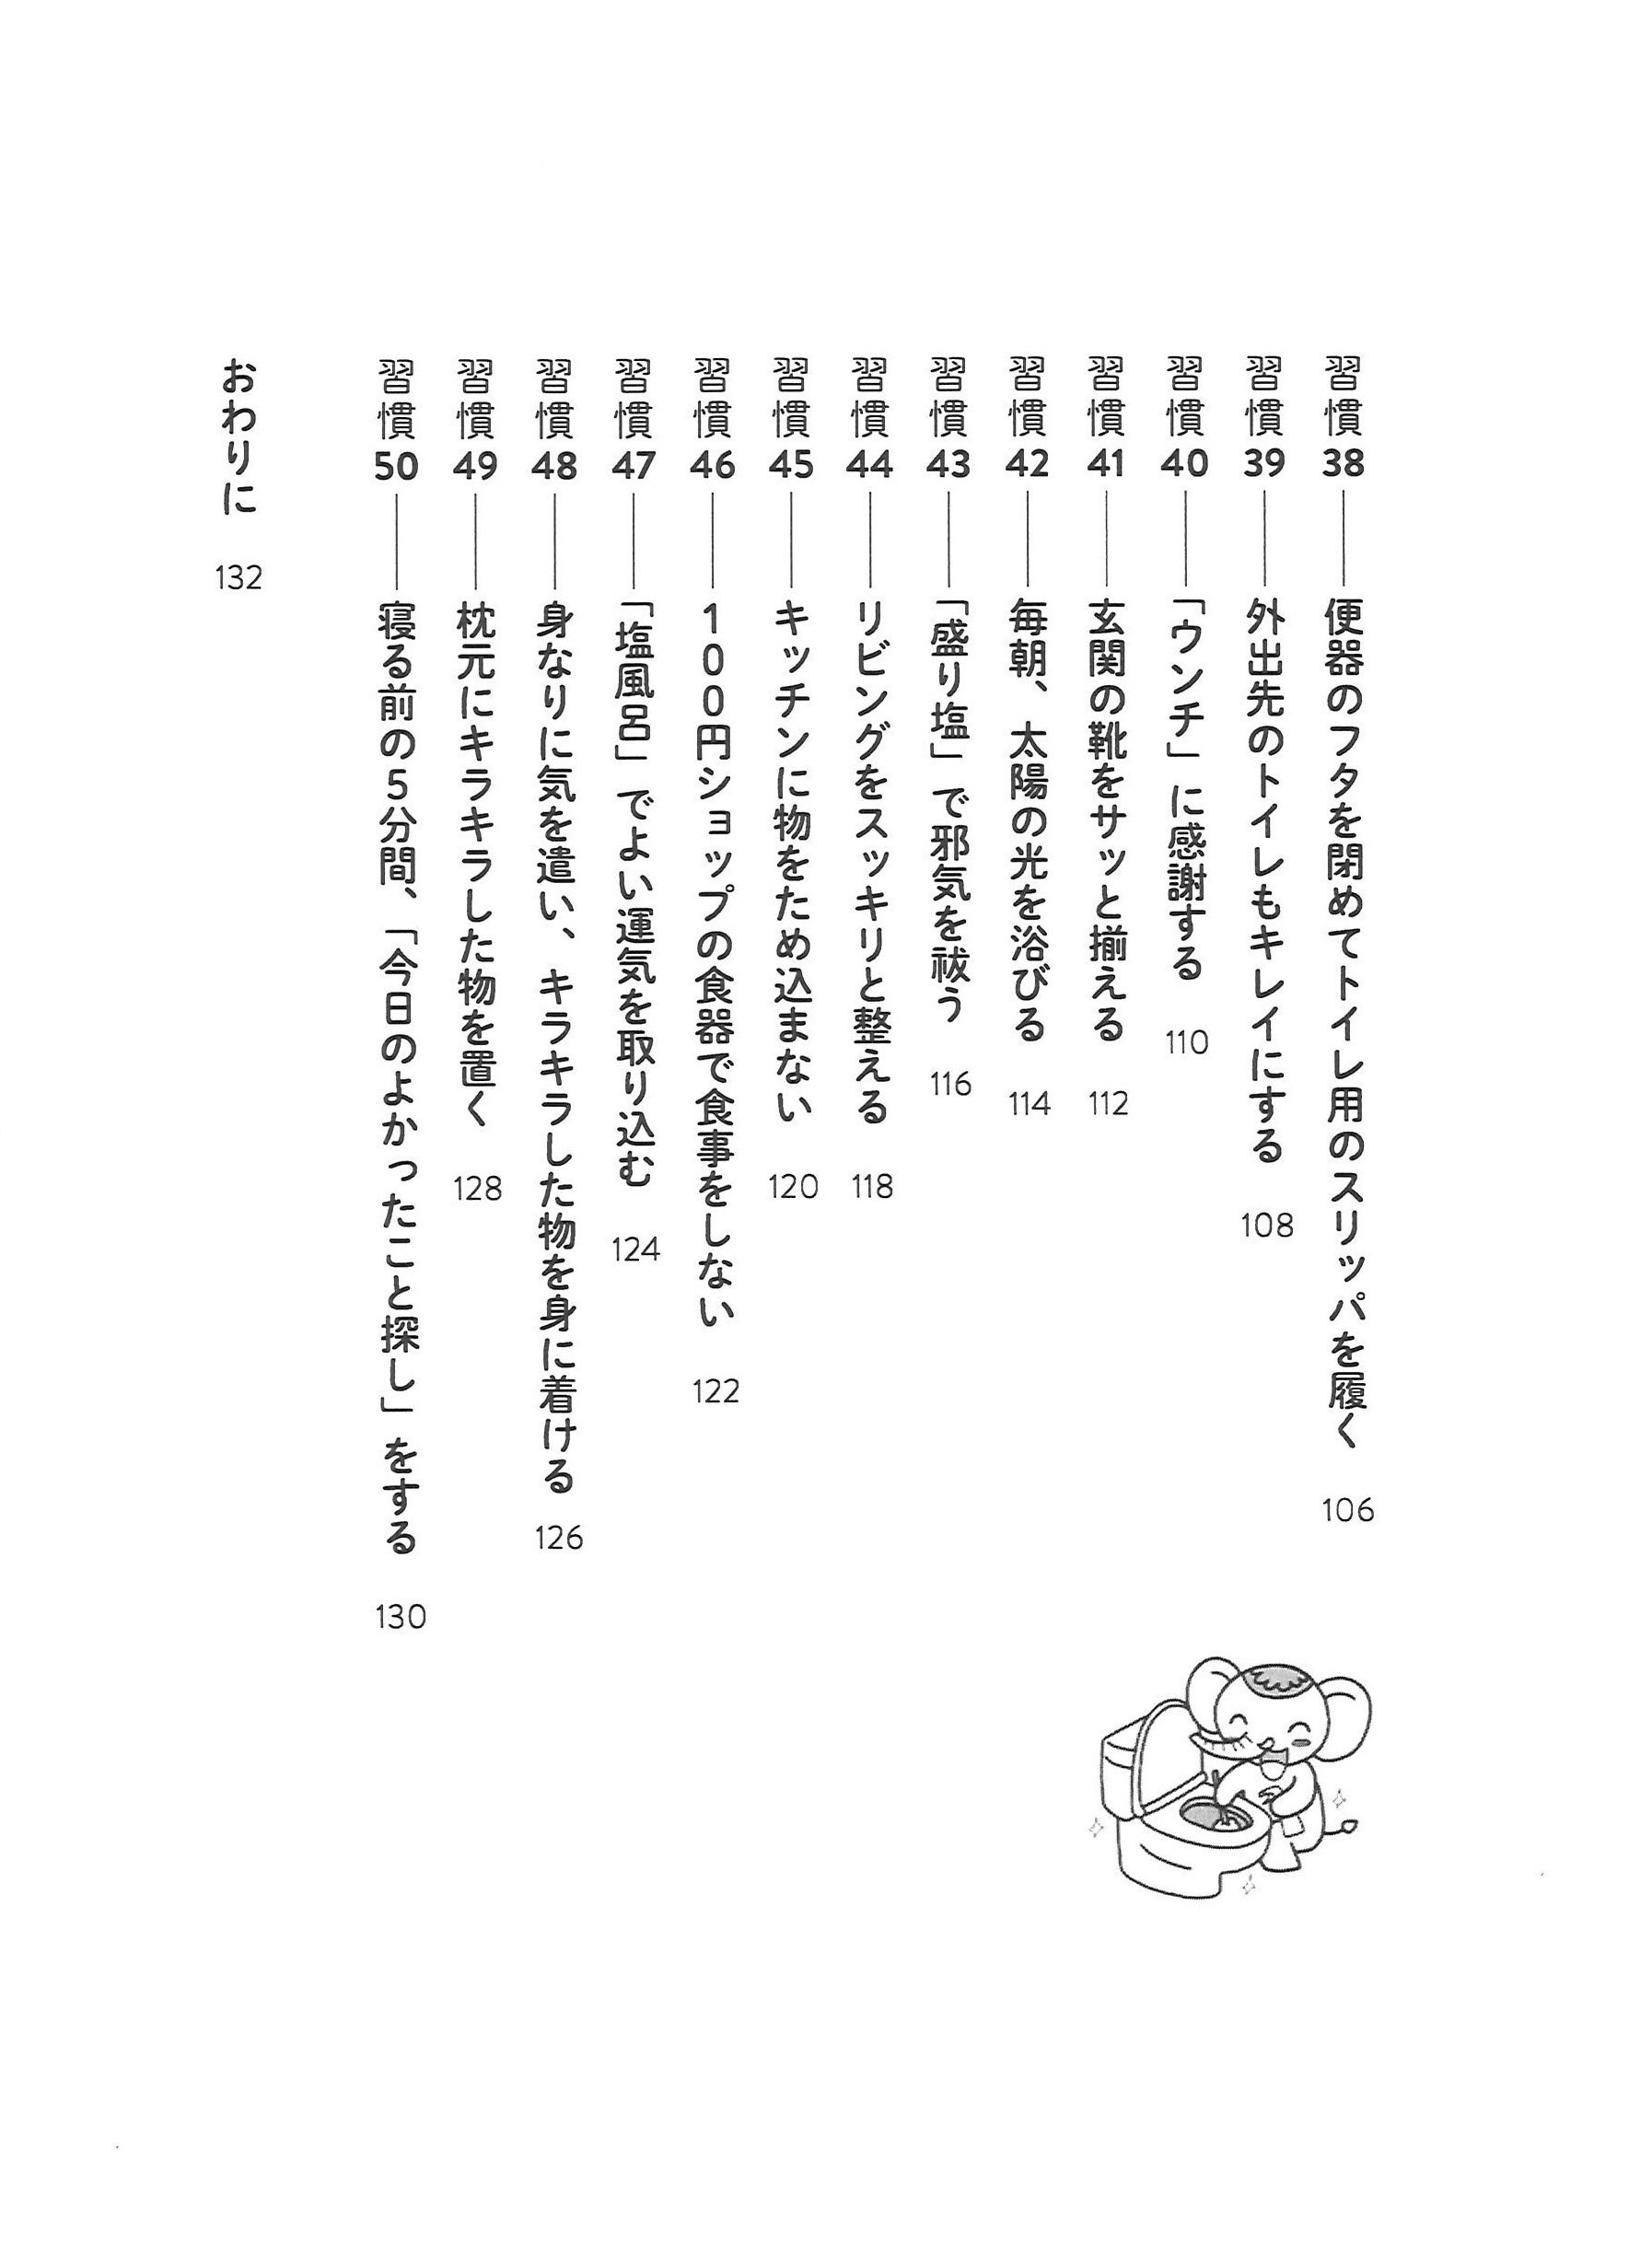 習慣38――便器のフタを閉めてトイレ用のスリッパを履く 106
習慣39――外出先のトイレもキレイにする 108
習慣40――「ウンチ」に感謝する 110
習慣41――玄関の靴をサッと揃える 112
習慣42――毎朝、太陽の光を浴びる 114
習慣43――「盛り塩」で邪気を祓う 116
習慣44――リビングをスッキリと整える 118
習慣45――キッチンに物をため込まない 120
習慣46――100円ショップの食器で食事をしない 122
習慣47――「塩風呂」でよい運気を取り込む 124
習慣48――身なりに気を遣い、キラキラした物を身に着ける 126
習慣49――枕元にキラキラした物を置く 128
習慣50――寝る前の5分間、「今日のよかったこと探し」をする 130
おわりに 132